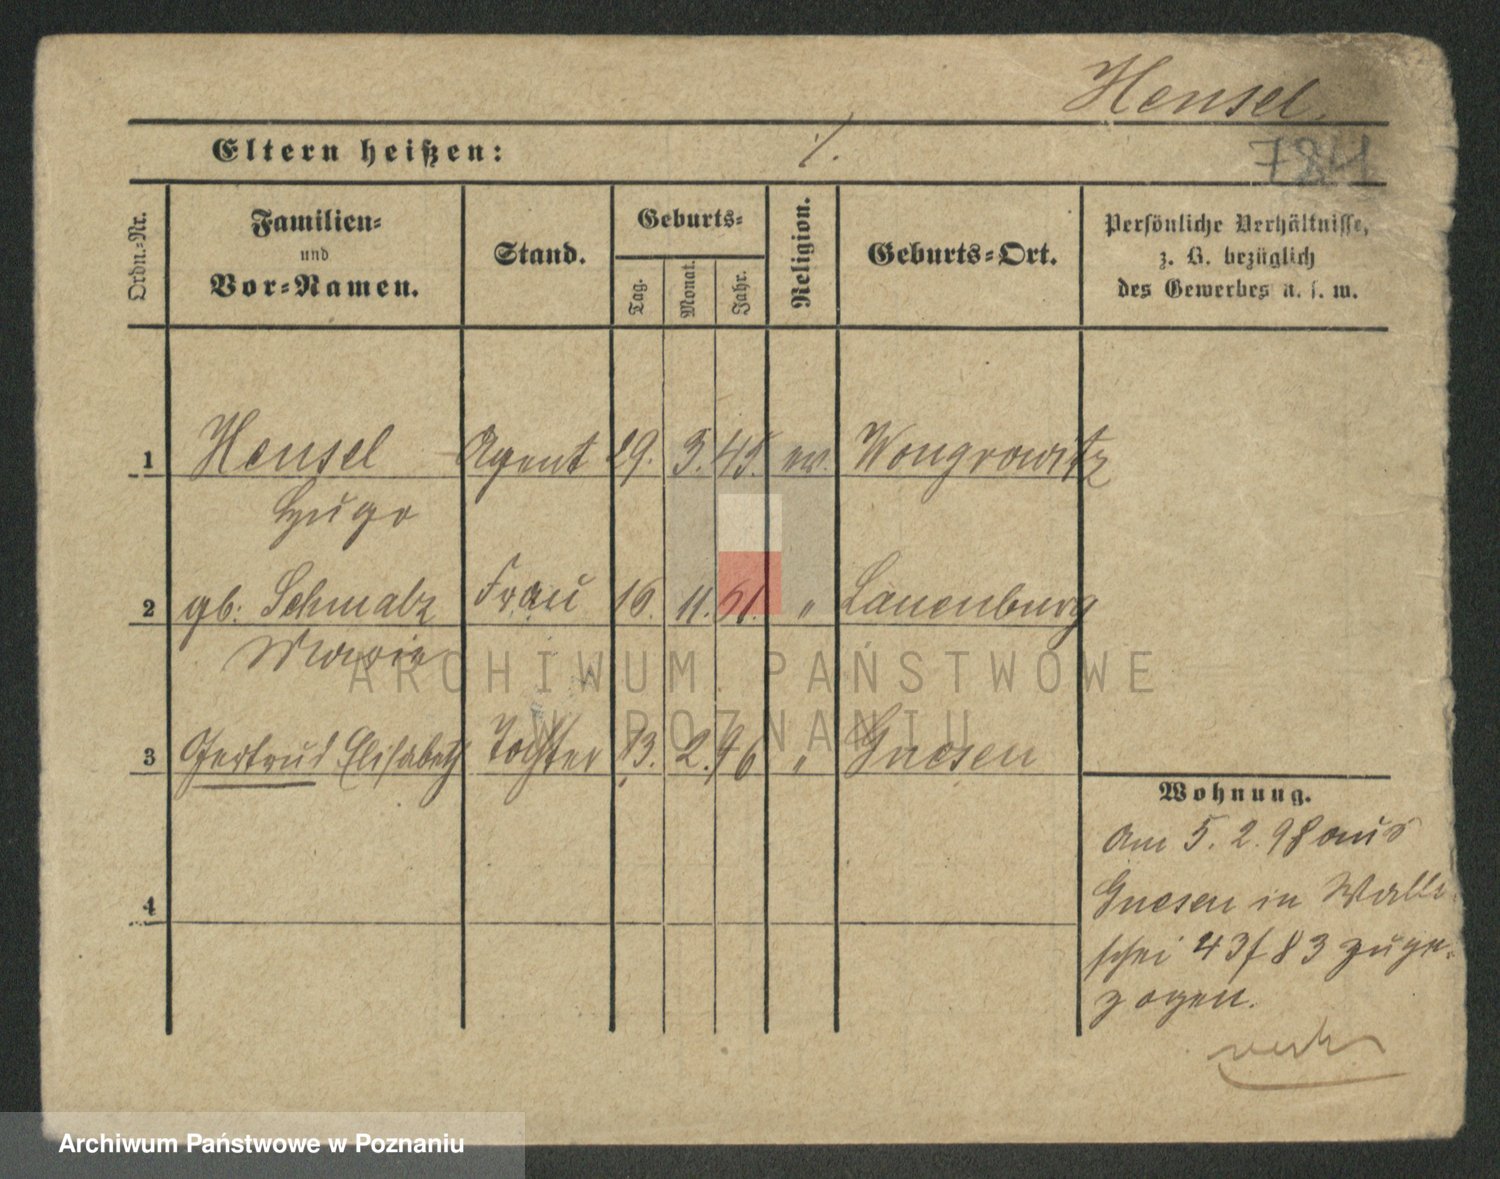 Hensel
Eltern heißen: ./.
7841
Ordn.-Nr. Familien- und Vor-Namen. Stand. Geburts- Tag. Monat. Jahr. Religion. Geburts-Ort. Persönliche Verhältnisse, z. B. bezüglich des Gewerbes u. s. w.
1 Hensel Agent 29. 3. 45. ev. Wongrowitz
Hugo
2 gb: Schmalz Frau 16. 11. 61. " Lauenburg
Maria
3 Gertrud Elisabeth Tochter 13. 2. 96 " Gnesen
4
Wohnung.
Am 5. 2. 98 aus
Gnesen in Walli-
schei 43/83 zuge-
zogen.
ARCHIWUM PAŃSTWOWE
W POZNANIU
Archiwum Państwowe w Poznaniu